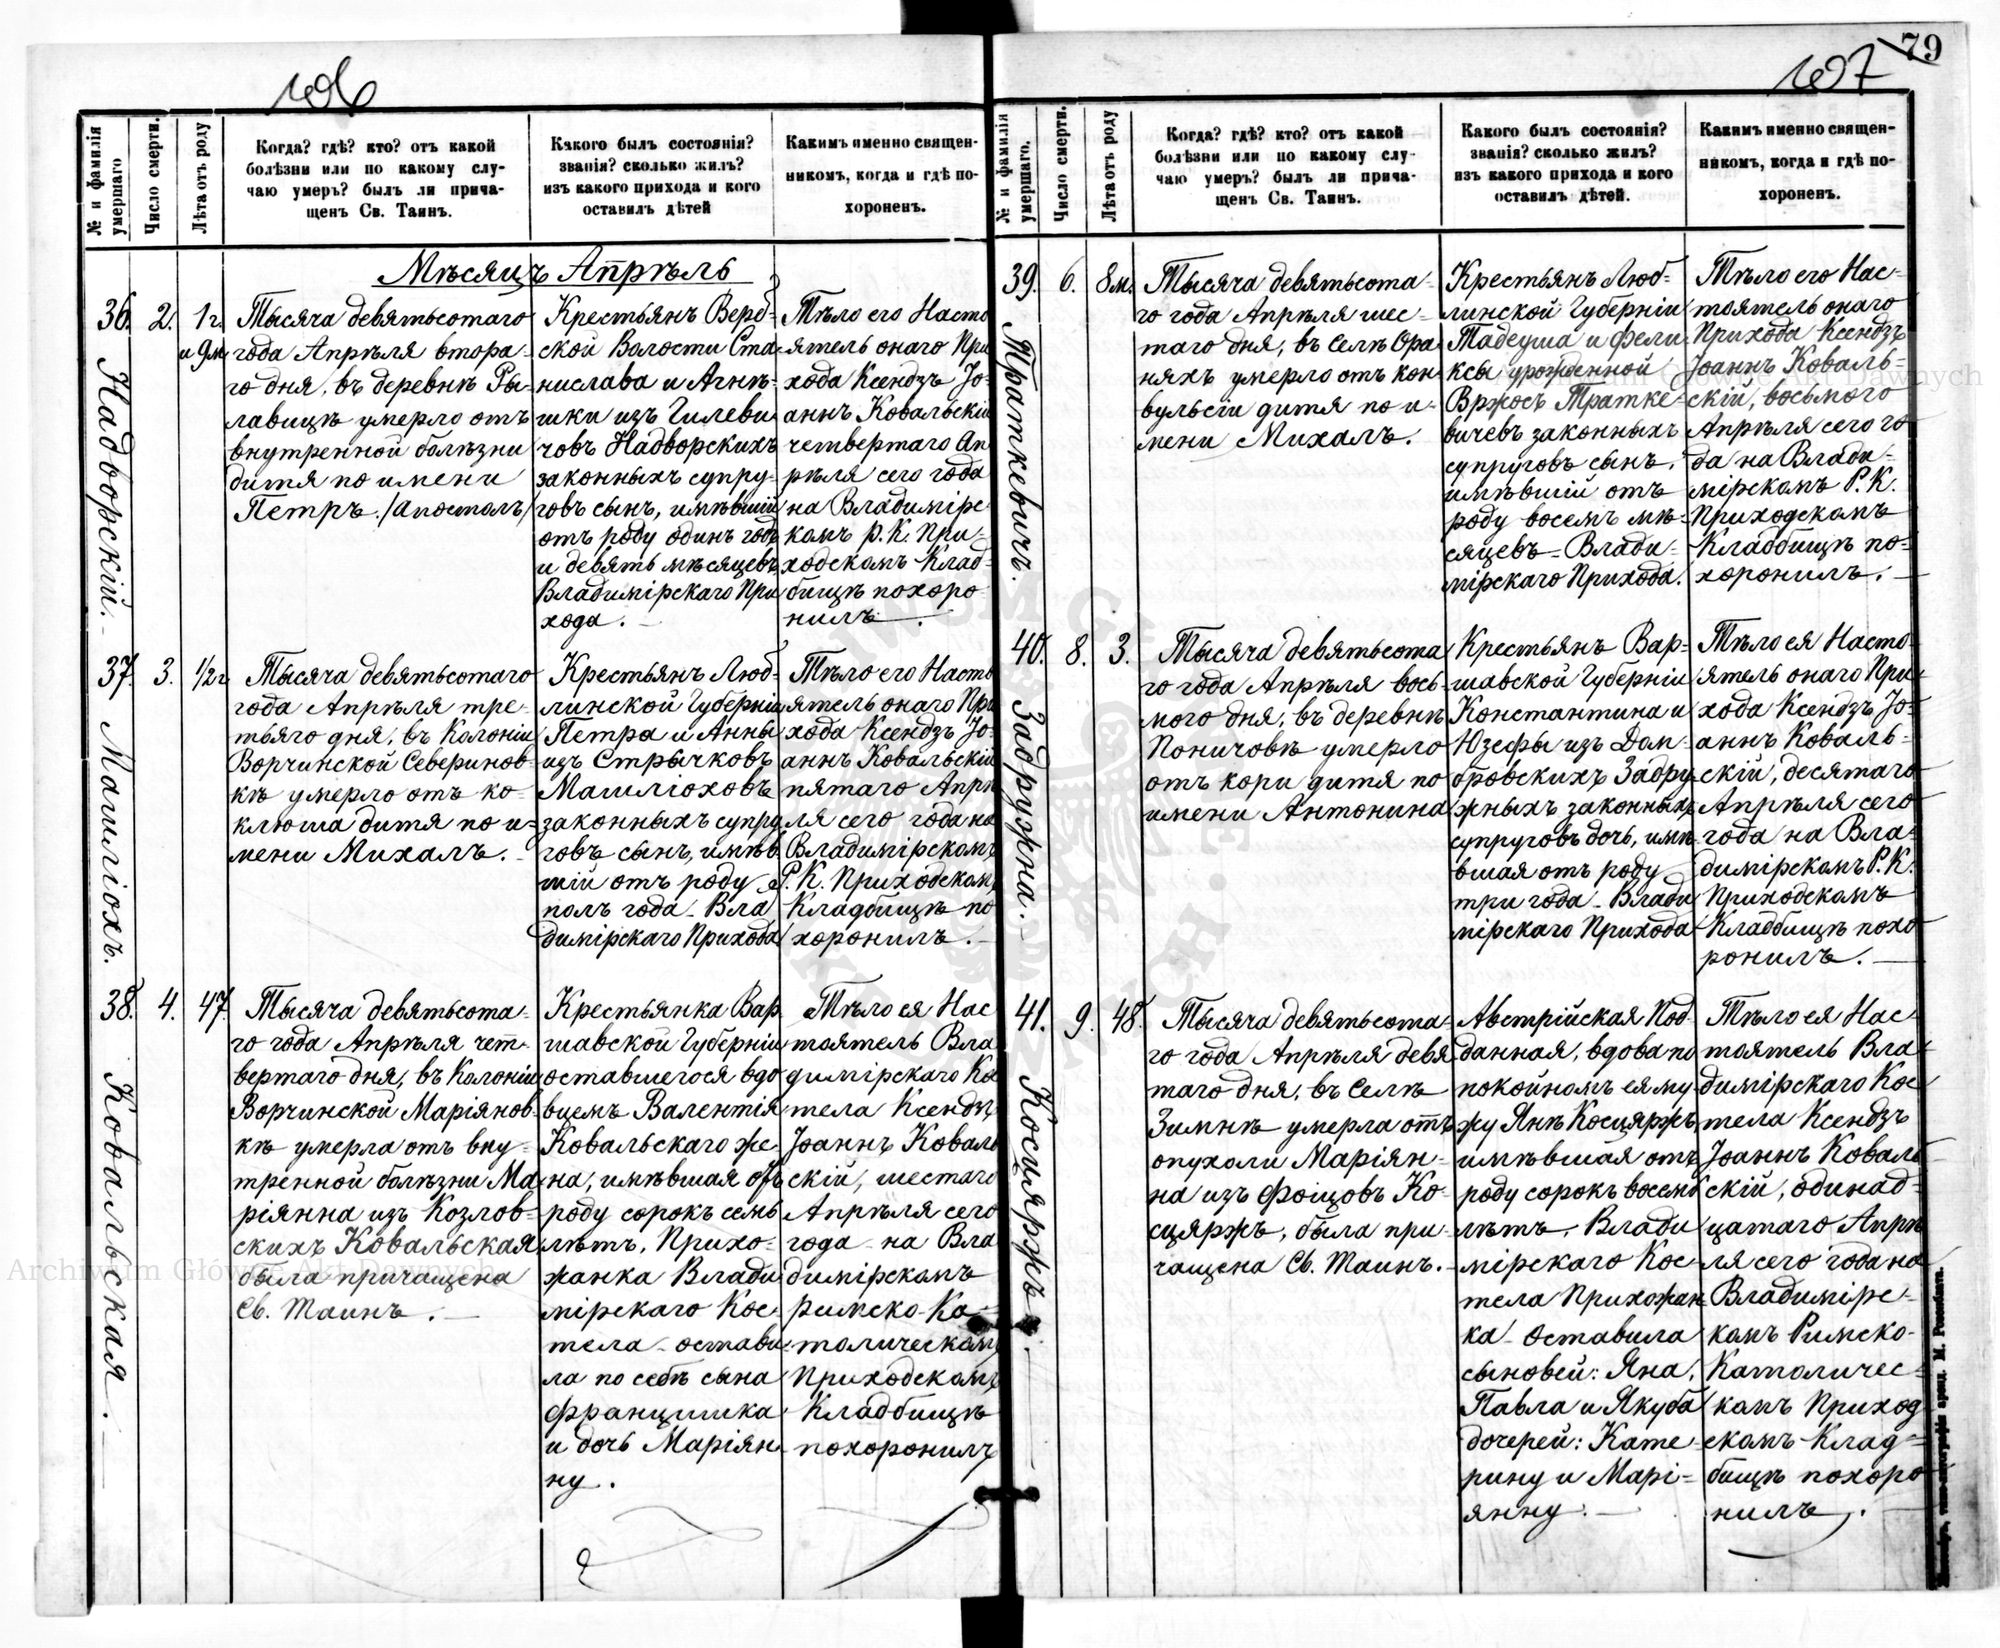 79
106
107
№ и фамилія умершаго
Число смерти.
Лѣта отъ роду
Когда? гдѣ? кто? отъ какой
болѣзни или по какому слу-
чаю умеръ? былъ ли прича-
щенъ Св. Таинъ.
Какого былъ состоянія?
званія? сколько жилъ?
изъ какого прихода и кого
оставилъ дѣтей
Какимъ именно священ-
никомъ, когда и гдѣ по-
хороненъ.
Мѣсяцъ Апрѣль
36.
Надворскій.
2.
1 г.
и 9 м.
Тысяча девятьсотаго
года Апрѣля втора-
го дня, въ деревнѣ Ры-
лавицѣ умерло отъ
внутренной болѣзни
дитя по имени
Петръ. /Апостолъ/
Крестьянъ Верб-
ской Волости Ста-
нислава и Агнѣ-
шки изъ Гилеви
човъ Надворскихъ
законныхъ супру-
говъ сынъ, имѣвшій
отъ роду одинъ годъ
и девять мѣсяцевъ
Владимірскаго При
хода.
Тѣло его Насто
ятель онаго При
хода Ксендзъ Іо-
аннъ Ковальскій
четвертаго Ап
рѣля сего года
на Владимірс-
комъ Р. К. При-
ходскомъ Клад-
бищѣ похоро-
нилъ.
37.
Машліохъ.
3.
1/2 г
Тысяча девятьсотаго
года Апрѣля тре-
тьяго дня, въ Колоніи
Ворчинской Северинов-
кѣ умерло отъ ко-
клюша дитя по и-
мени Михалъ.
Крестьянъ Люб-
линской Губерніи
Петра и Анны
изъ Стрычковъ
Машліоховъ
законныхъ супру
говъ сынъ, имѣв
шій отъ роду
полъ года - Вла
димірскаго Прихода
Тѣло его Насто
ятель онаго При
хода Ксендзъ Іо-
аннъ Ковальскій
пятаго Апрѣ
ля сего года на
Владимірскомъ
Р. К. Приходскомъ
Кладбищѣ по
хоронилъ.
38.
Ковальская.
4.
47.
Тысяча девятьсота-
го года Апрѣля чет-
вертаго дня, въ Колоніи
Ворчинской Маріянов-
кѣ умерла отъ вну-
тренной болѣзни Ма
ріянна изъ Козлов-
скихъ Ковальская
была причащена
Св. Таинъ.
Крестьянка Вар
шавской Губерніи
оставшегося вдо
вцемъ Валентія
Ковальскаго же-
на, имѣвшая отъ
роду сорокъ семь
лѣтъ, Прихо-
жанка Влади
мірскаго Кос-
тела - остави
ла по себѣ сына
Францишка
и дочь Маріян
ну.
Тѣло ея Нас
тоятель Вла
димірскаго Кос
тела Ксендзъ
Іоаннъ Коваль
скій, шестаго
Апрѣля сего
года на Вла
димірскомъ
римско-Ка-
толическомъ
Приходскомъ
Кладбищѣ
похоронилъ
№ и фамилія умершаго.
Число смерти.
Лѣта отъ роду
Когда? гдѣ? кто? отъ какой
болѣзни или по какому слу-
чаю умеръ? былъ ли прича-
щенъ Св. Таинъ.
Какого былъ состоянія?
званія? сколько жилъ?
изъ какого прихода и кого
оставилъ дѣтей.
Какимъ именно священ-
никомъ, когда и гдѣ по-
хороненъ.
39.
Траткевичъ.
6.
8 м.
Тысяча девятьсота-
го года Апрѣля шес-
таго дня, въ Селѣ Ора
няхъ умерло отъ кон
вульсіи дитя по и-
мени Михалъ.
Крестьянъ Люб-
линской Губерніи
Тадеуша и Фели
ксы урожденной
Вржосъ Тратке-
вичевъ законныхъ
супруговъ сынъ,
имѣвшій отъ
роду восемъ мѣ-
сяцевъ - Влади-
мірскаго Прихода.
Тѣло его Нас-
тоятель онаго
Прихода Ксендзъ
Іоаннъ Коваль-
скій, восьмого
Апрѣля сего го
да на Влади-
мірскомъ Р. К.
Приходскомъ
Кладбищѣ по-
хоронилъ.
40.
Задружна.
8.
3.
Тысяча девятьсота
го года Апрѣля вось-
мого дня, въ деревнѣ
Поничовѣ умерло
отъ кори дитя по
имени Антонина
Крестьянъ Вар-
шавской Губерніи
Константина и
Юзефы изъ Дом-
бровскихъ Задру
жныхъ законныхъ
супруговъ дочь, имѣ
вшая отъ роду
три года - Влади
мірскаго Прихода
Тѣло ея Насто-
ятель онаго При
хода Ксендзъ Іо-
аннъ Коваль-
скій, десятаго
Апрѣля сего
года на Вла-
димірскомъ Р. К.
Приходскомъ
Кладбищѣ похо
ронилъ.
41.
Косцяржъ.
9.
48.
Тысяча девятьсота
го года Апрѣля девя
таго дня, въ Селѣ
Зимнѣ умерла отъ
опухоли Маріян-
на изъ Фоіцовъ Ко-
сцяржъ, была при-
чащена Св. Таинъ.
Австрійская Под
данная, вдова по
покойномъ ея му
жу Янѣ Косцяржъ,
имѣвшая отъ
роду сорокъ восемь
лѣтъ, Влади
мірскаго Кос-
тела Прихожан
ка - Оставила
сыновей: Яна,
Павла и Якуба
дочерей: Кате-
рину и Марі-
янну.
Тѣло ея Нас-
тоятель Вла-
димірскаго Кос
тела Ксендзъ
Іоаннъ Коваль
скій, одинад-
цатаго Апрѣ
ля сего года на
Владимірс-
комъ Римско-
Католичес-
комъ Приход
скомъ Клад-
бищѣ похоро
нилъ.
Archiwum Główne Akt Dawnych